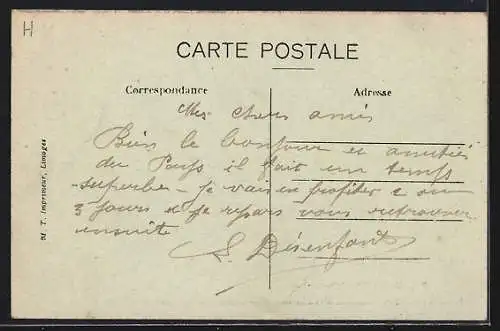 H
CARTE POSTALE
Correspondance
Adresse
Mes chers amis
Bien le bonjour et amitiés
du Pays il fait un temps
superbe - je vais en profiter 2 ou
3 jours et je repars vous retrouver
ensuite
L. Désenfants
M. T. Imprimeur, Limoges